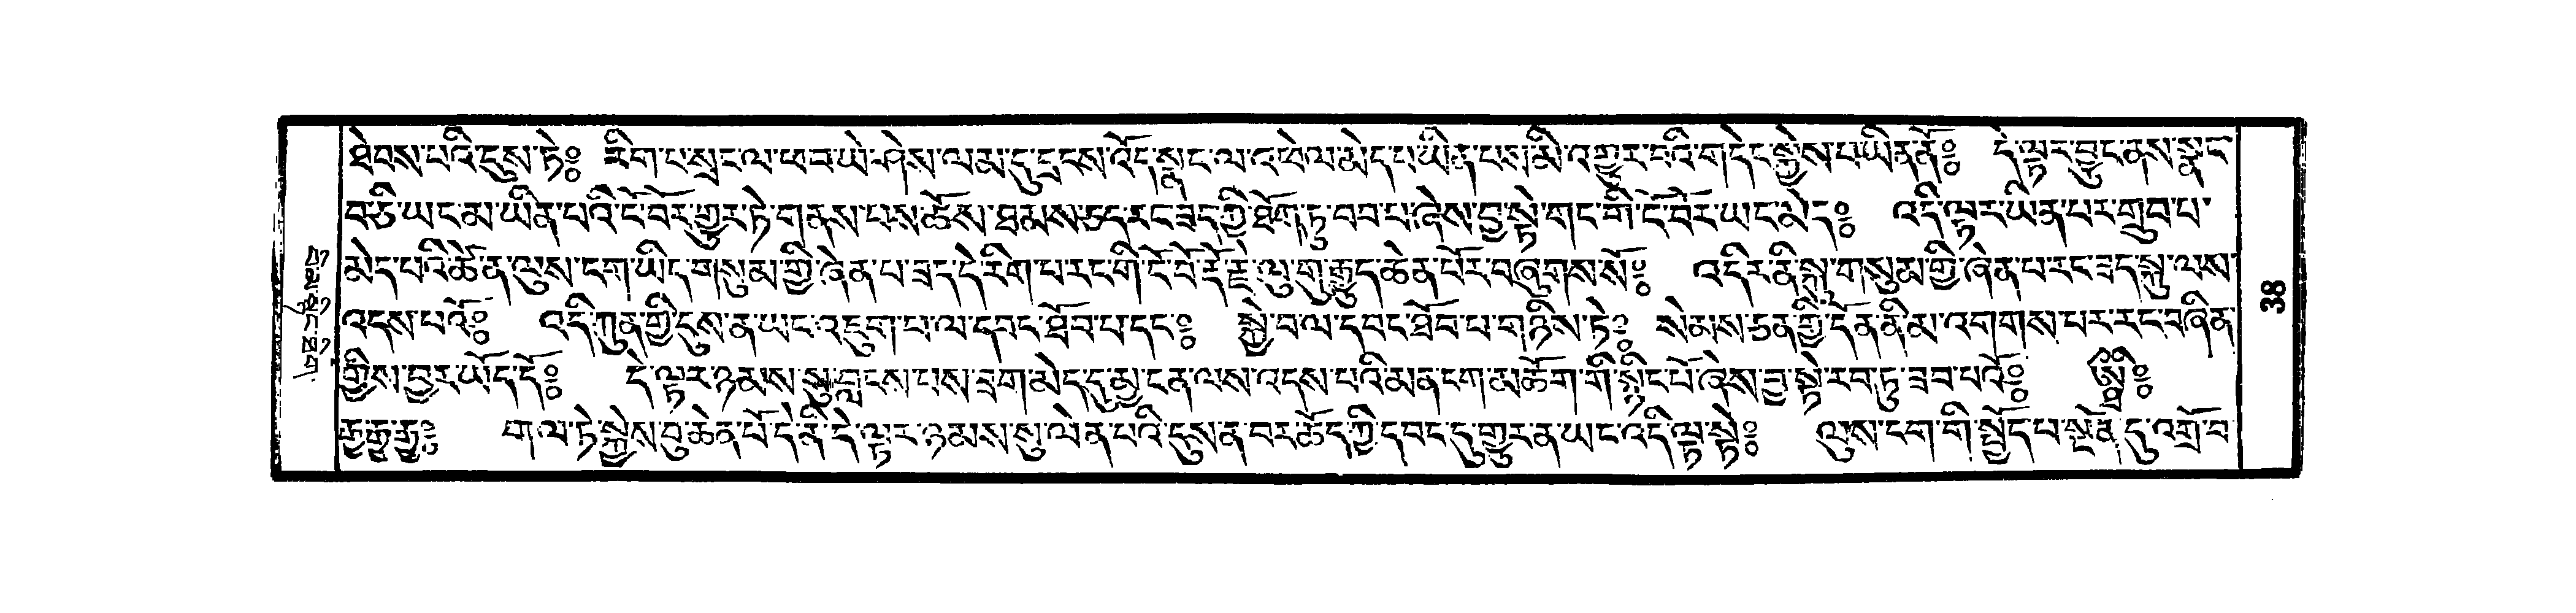 ཐེབས་པའི་དུས་ཏེ༔ རིག་པ་སྲང་ལ་ཕབ་ཡེ་ཤེས་ལམ་དུ་དྲངས་འོད་སྣང་ལ་འཕེལ་མེད་པ་ཡིན་པས་མི་འགྱུར་བའི་གདེང་སྐྱེས་པ་ཡིན་ནོ༔ དེ་ལྟར་བྱུང་ནས་སྣང་
བ་ཅི་ཡང་མ་ཡིན་པའི་ངོ་བོར་གྱུར་ཏེ་གནས་པས་ཆོས་ཐམས་ཅད་རང་ཟད་ཀྱི་ཐོག་ཏུ་བབ་པ་ཞེས་བྱ་སྟེ་གང་གི་ངོ་བོར་ཡང་མེད༔ འདི་ལྟར་ཡིན་པར་གྲུབ་པ་
མེད་པའི་ཚེ་ན་ལུས་ངག་ཡིད་གསུམ་གྱི་ཞེན་པ་ཟད་དེ་རིག་པ་རང་གི་ངོ་བོ་རྡོ་རྗེ་ལུ་གུ་རྒྱུད་ཆེན་པོར་བཞུགས་སོ༔ འདིར་ནི་སྐུ་གསུམ་གྱི་ཞེན་པ་རང་ཟད་སྐུ་ལས་
འདས་པའོ༔ འདི་ཀུན་གྱི་དུས་ན་ཡང་འཇུག་པ་ལ་དབང་ཐོབ་པ་དང༔ སྐྱེ་བལ་དབང་ཐོབ་པ་གཉིས་ཏེ༔ སེམས་ཅན་གྱི་དོན་ནི་མ་འགགས་པར་རང་བཞིན་
གྱིས་བྱར་ཡོད་དོ༔ དེ་ལྟར་ཉམས་སུ་བླངས་པས་ཟག་མེད་དུ་མྱ་ངན་ལས་འདས་པའི་མན་ངག་མཆོག་གི་སྙིང་པོ་ཞེས་བྱ་སྟེ་རབ་ཏུ་ཟབ་པའོ༔ ཨྠྀི༔
རྒྱ་རྒྱ་རྒྱ༔ གལ་ཏེ་སྐྱེས་བུ་ཆེན་པོ་དེ་ནི་དེ་ལྟར་ཉམས་སུ་ལེན་པའི་དུས་ན་བར་ཆོད་ཀྱི་དབང་དུ་གྱུར་ན་ཡང་འདི་ལྟ་སྟེ༔ ལུས་ངག་གི་སྤྱོད་པ་སྔོན་དུ་འགྲོ་བ་
༣༣